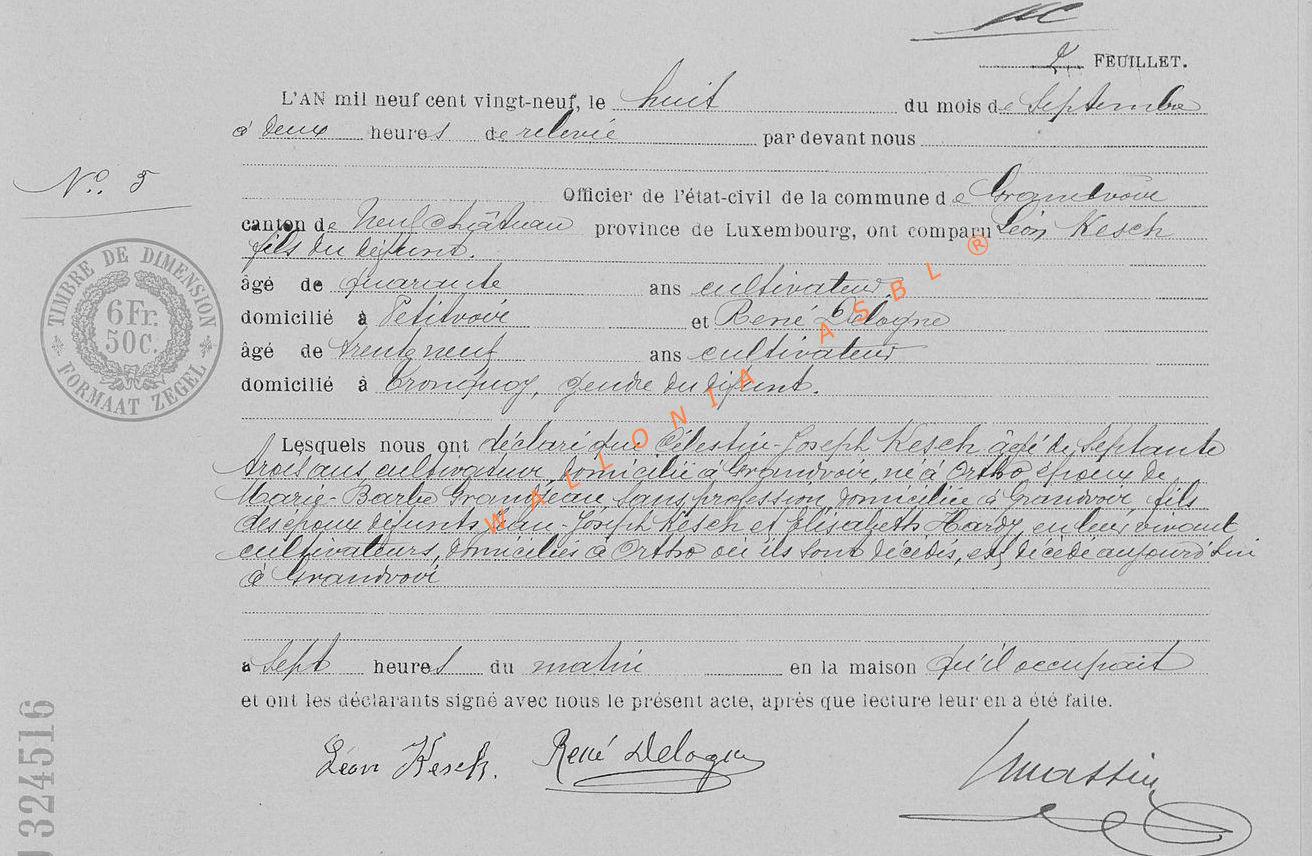 2 FEUILLET.
L'AN mil neuf cent vingt-neuf, le huit du mois de Septembre
à deux heures de relevée par devant nous
Officier de l'état-civil de la commune de Grandvoir
N° 5
canton de Neufchâteau province de Luxembourg, ont comparu Léon Kesch
fils du défunt.
âgé de quarante ans cultivateur
domicilié à Petitvoir et René Delogne
âgé de trente neuf ans cultivateur
domicilié à Tronquoy, gendre du défunt.
Lesquels nous ont déclaré que Célestin-Joseph Kesch âgé de septante
trois ans cultivateur, domicilié à Grandvoir, né à Ortho époux de
Marie-Barbe Grandjean, sans profession, domiciliée à Grandvoir fils
des époux défunts Jean-Joseph Kesch et Elisabeth Hardy, en leur vivant
cultivateurs, domiciliés à Ortho où ils sont décédés, est décédé aujourd'hui
à Grandvoir
à sept heures du matin en la maison qu'il occupait
et ont les déclarants signé avec nous le présent acte, après que lecture leur en a été faite.
Léon Kesch. René Delogne
TIMBRE DE DIMENSION
6 Fr.
50 C.
FORMAAT ZEGEL
324516
WALLONIA ASBL ®